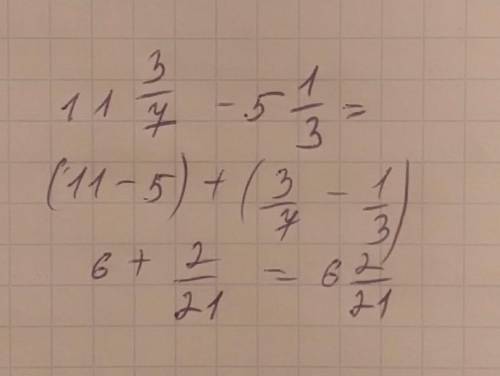 11 3/7 - 5 1/3 =
(11 - 5) + (3/7 - 1/3)
6 + 2/21 = 6 2/21